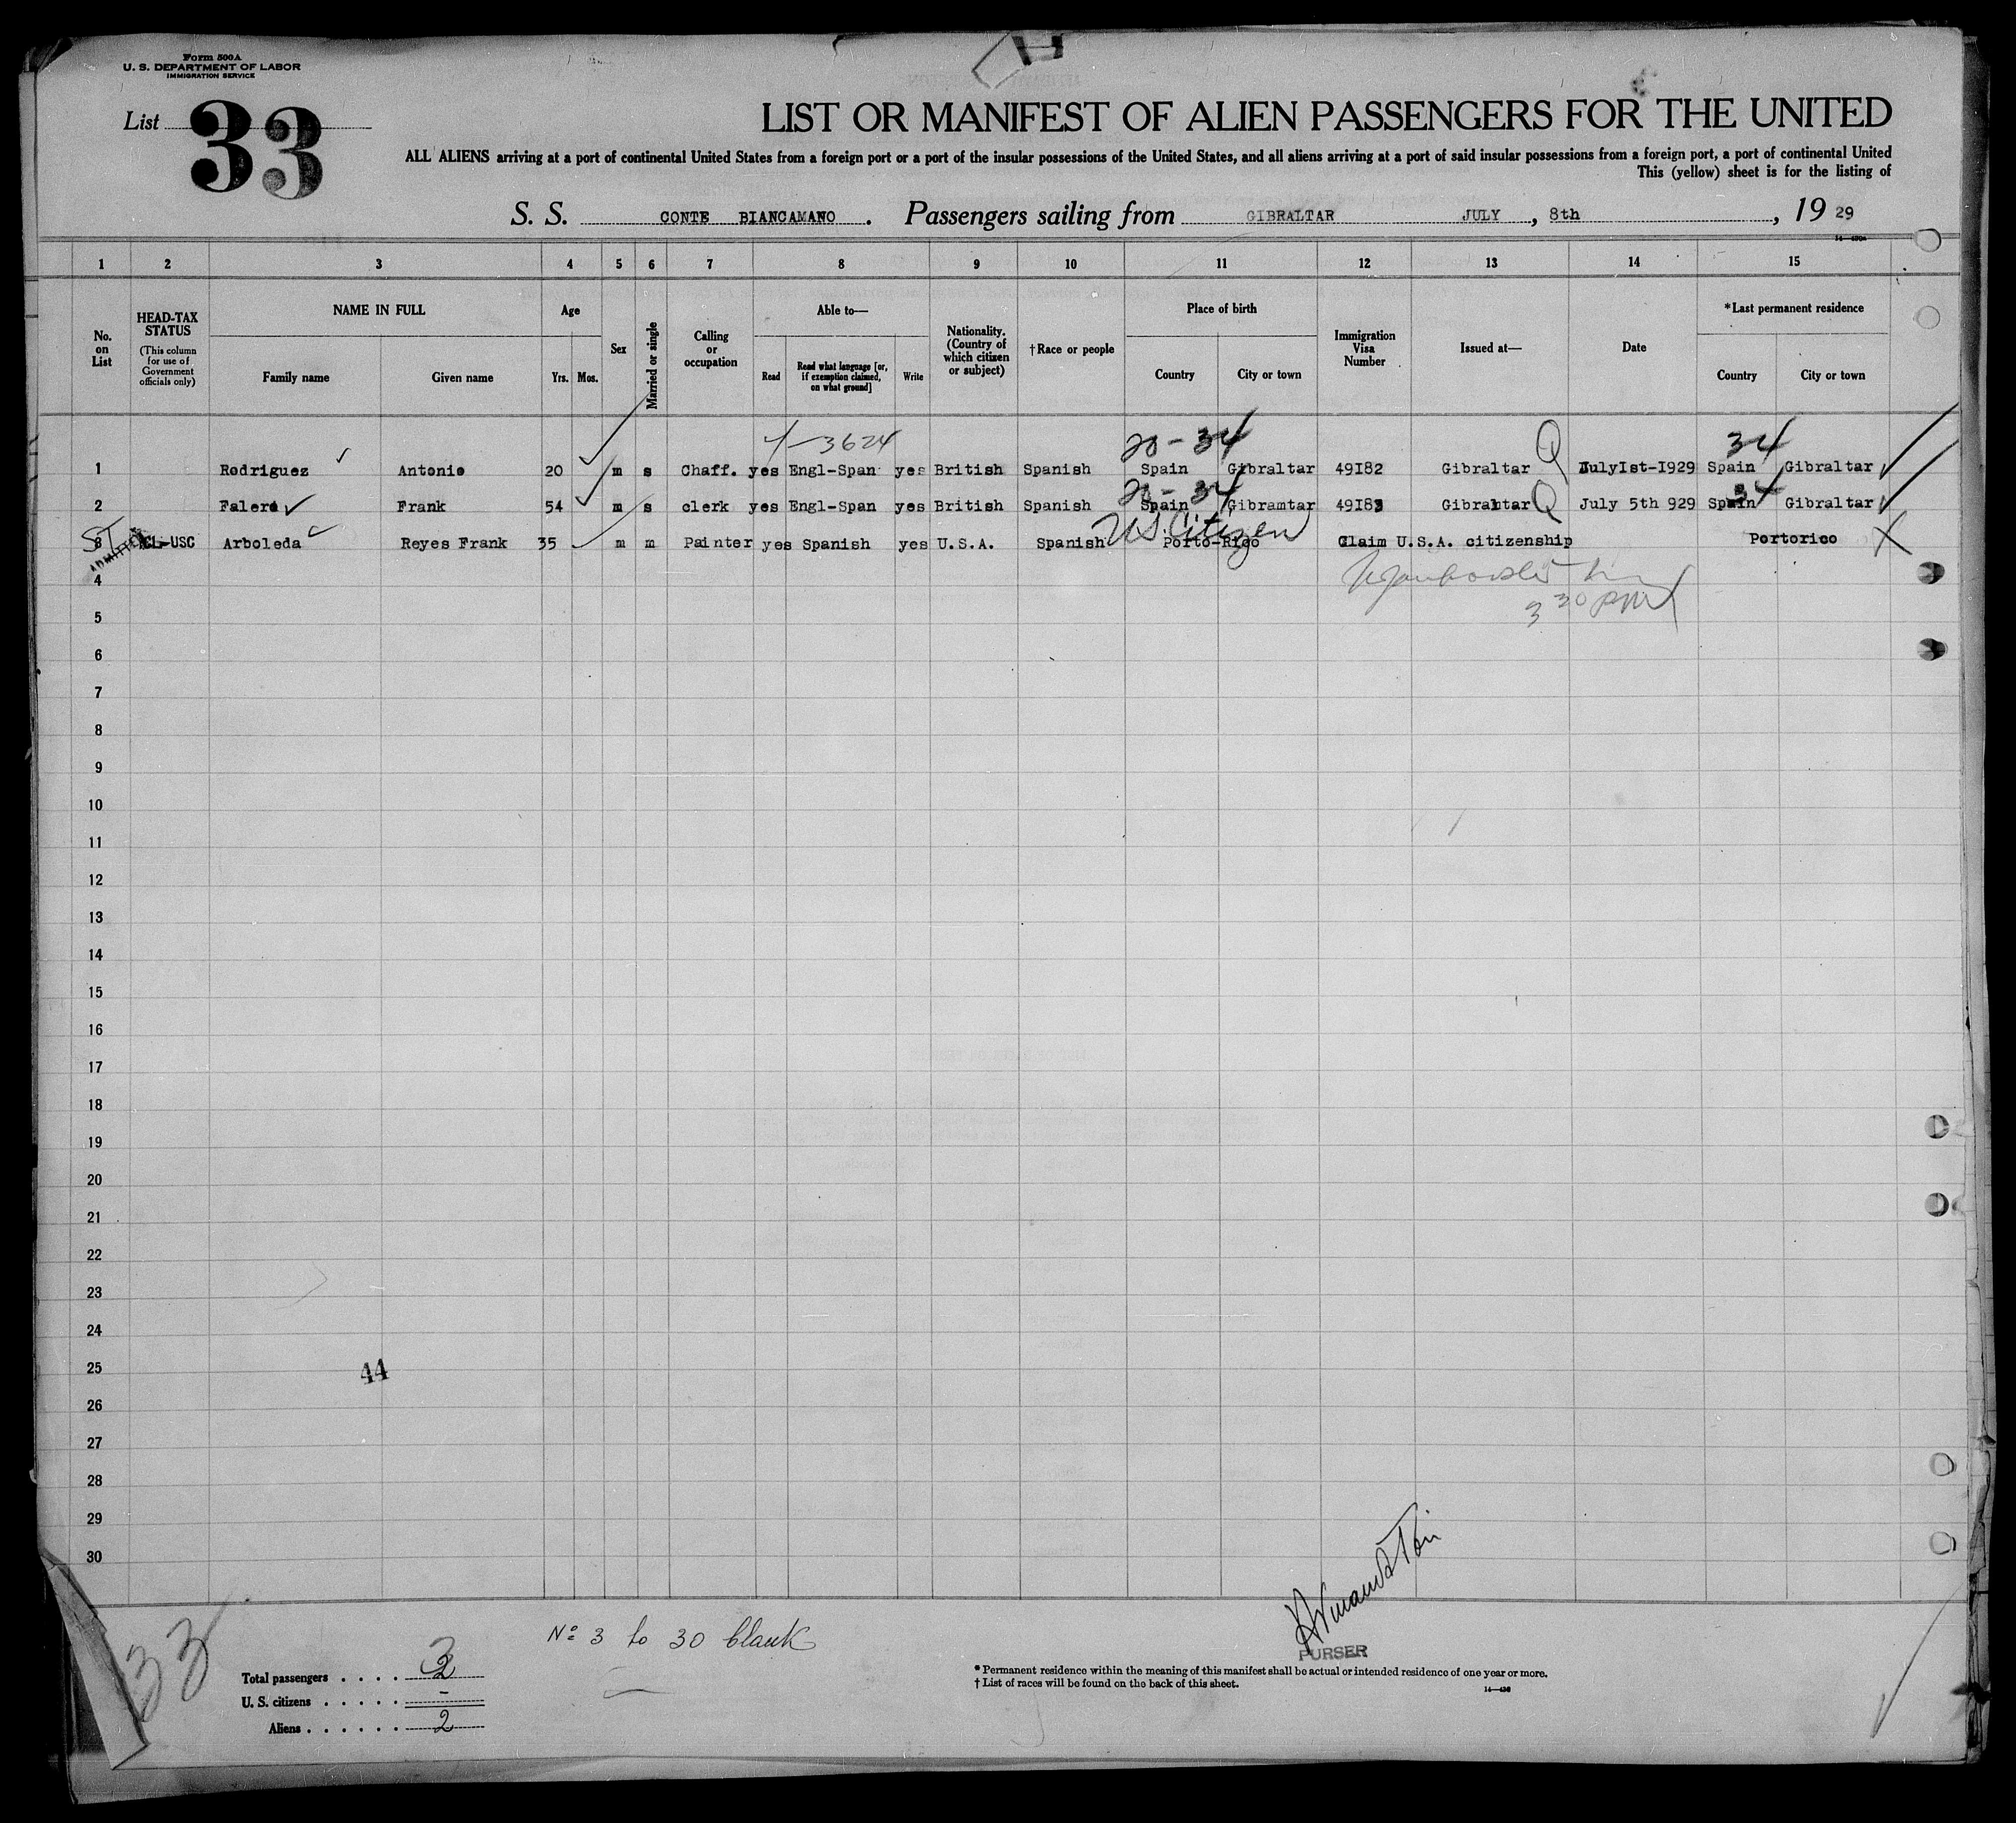 Form 500A
U. S. DEPARTMENT OF LABOR
IMMIGRATION SERVICE
List 33
LIST OR MANIFEST OF ALIEN PASSENGERS FOR THE UNITED
ALL ALIENS arriving at a port of continental United States from a foreign port or a port of the insular possessions of the United States, and all aliens arriving at a port of said insular possessions from a foreign port, a port of continental United
This (yellow) sheet is for the listing of
S. S. CONTE BIANCAMANO . Passengers sailing from GIBRALTAR JULY , 8th , 19 29
1 2 3 4 5 6 7 8 9 10 11 12 13 14 15
No. on List
HEAD-TAX STATUS
(This column for use of Government officials only)
NAME IN FULL
Family name
Given name
Age
Yrs.
Mos.
Sex
Married or single
Calling or occupation
Able to—
Read
Read what language [or, if exemption claimed, on what ground]
Write
Nationality. (Country of which citizen or subject)
†Race or people
Place of birth
Country
City or town
Immigration Visa Number
Issued at—
Date
*Last permanent residence
Country
City or town
3624 20-34 Q 34
1 Rodriguez Antonio 20 m s Chaff. yes Engl-Span yes British Spanish Spain Gibraltar 49I82 Gibraltar July1st-I929 Spain Gibraltar
20-34 Q 34
2 Falero Frank 54 m s clerk yes Engl-Span yes British Spanish Spain Gibramtar 49I83 Gibraltar July 5th 929 Spain Gibraltar
U.S. Citizen
ADMITTED
3 CL-USC Arboleda Reyes Frank 35 m m Painter yes Spanish yes U.S.A. Spanish Porto-Rico Claim U.S.A. citizenship Portorico X
4
3 30 PM
5
6
7
8
9
10
11
12
13
14
15
16
17
18
19
20
21
22
23
24
25
44
26
27
28
29
30
33
Nº 3 to 30 blank
PURSER
Total passengers . . . . 3
U. S. citizens . . . . . -
Aliens . . . . . . 2
* Permanent residence within the meaning of this manifest shall be actual or intended residence of one year or more.
† List of races will be found on the back of this sheet.